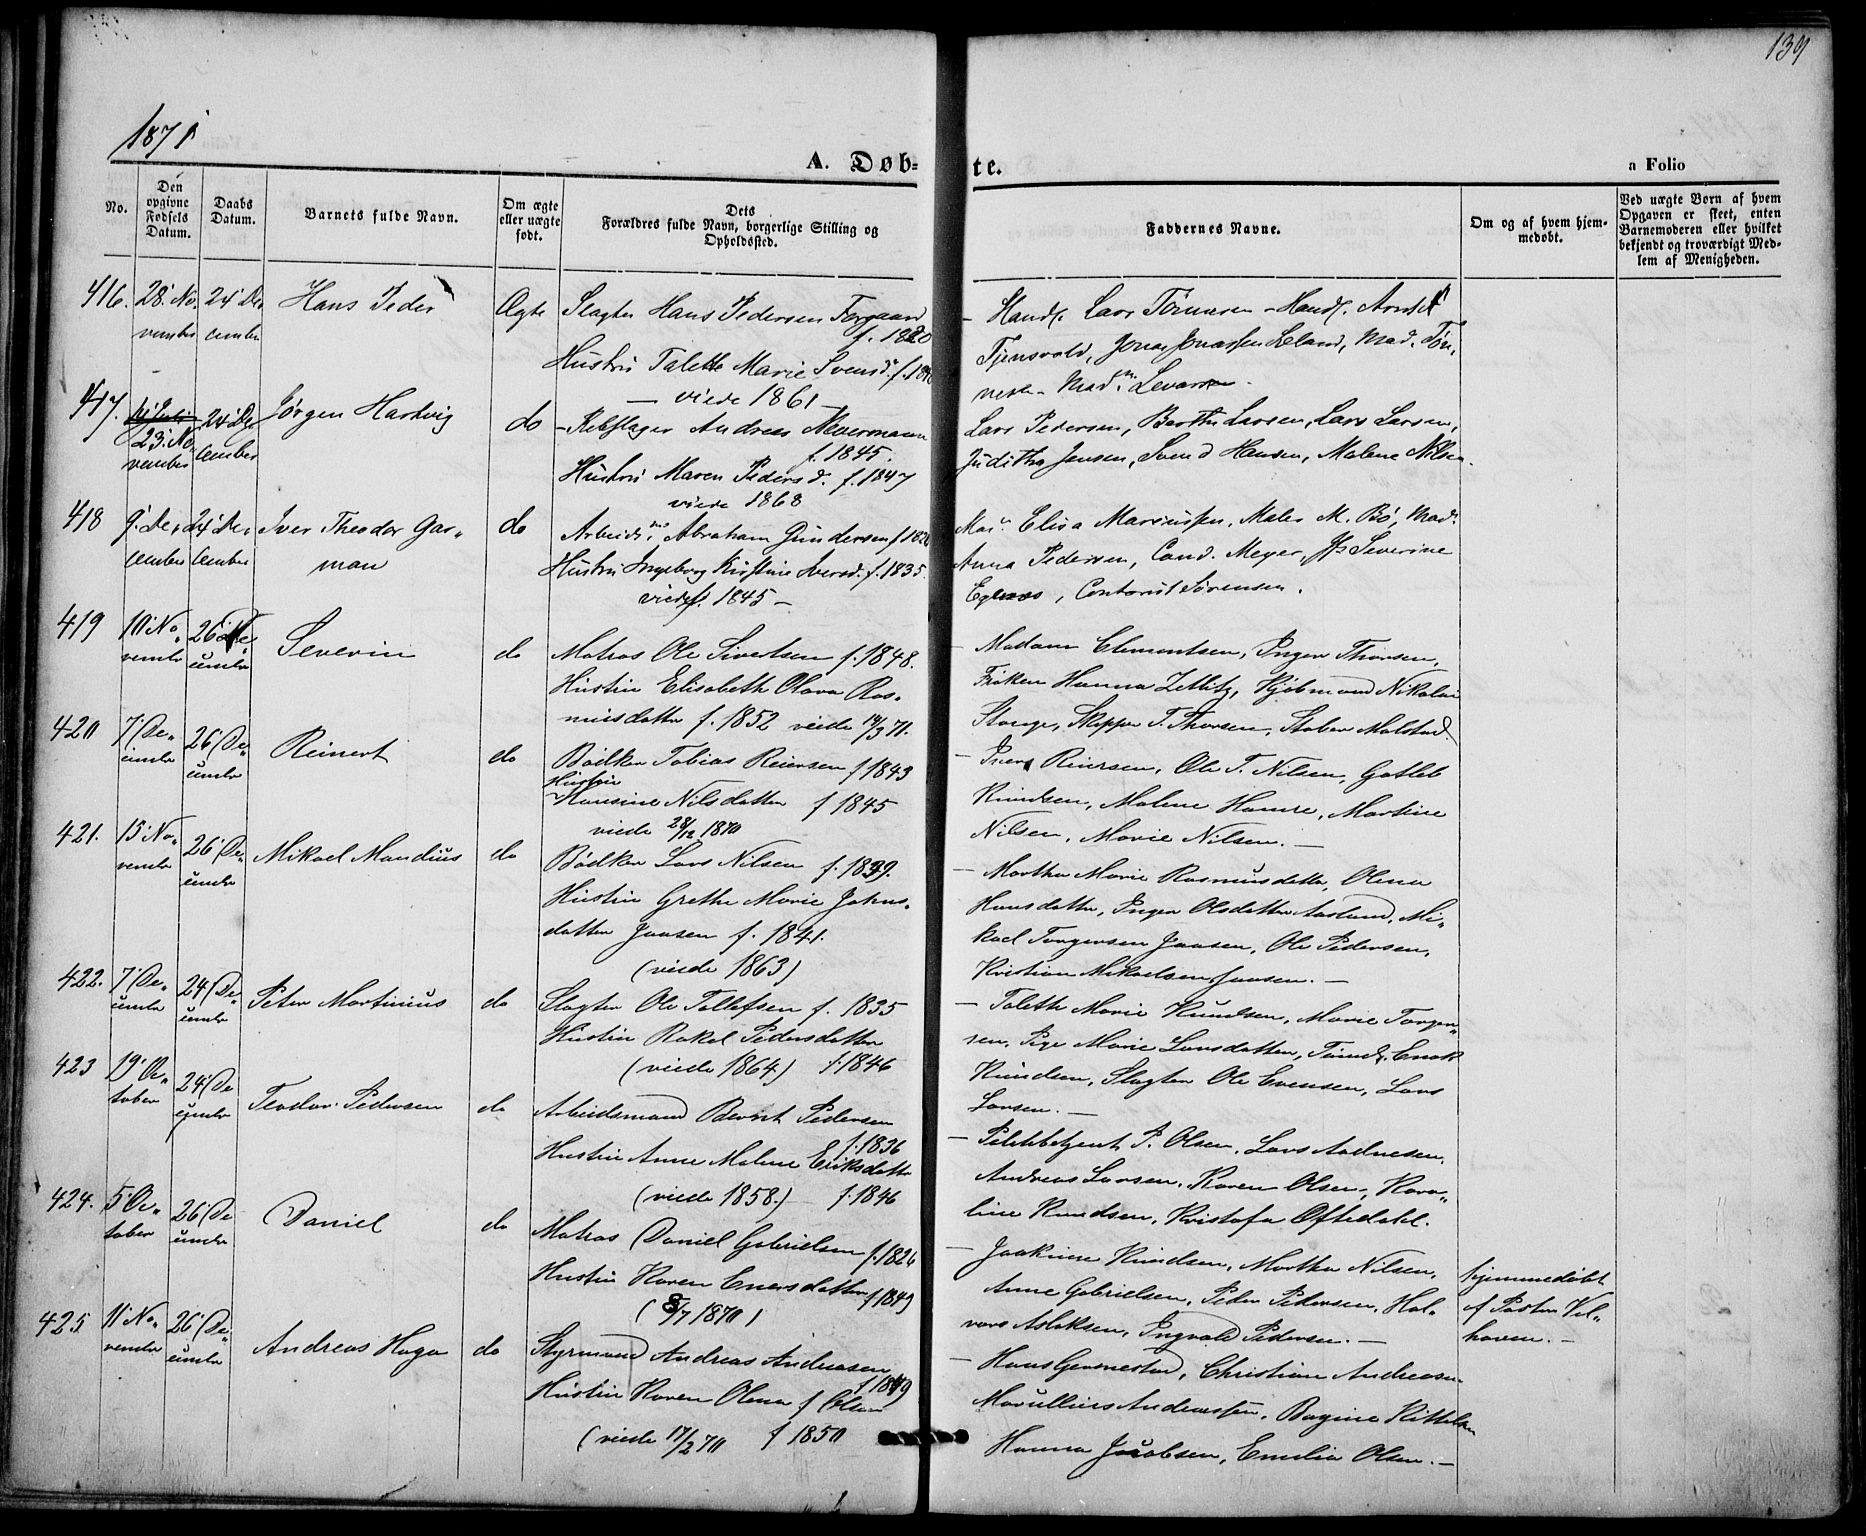 139
1871
A. Døb-
te.
a Folio
No.
Den opgivne Fødsels Datum.
Daabs Datum.
Barnets fulde Navn.
Om ægte eller uægte født.
Dets Forældres fulde Navn, borgerlige Stilling og Opholdssted.
Faddernes Navne.
Om og af hvem hjemmedøbt.
Ved uægte Børn af hvem Opgaven er skeet, enten Barnemoderen eller hvilket bekjendt og troværdigt Medlem af Menigheden.
416. 28' No, 24' De, Hans Peder Ægte Slagter Hans Pedersen
vember cember f. 1820
Hustru Talette Marie Svensd. f.
– viede 1861 –
– Handl. Lars Handl.
Jonas Jonassen Mad.
Mad.
417. 24' De, Jørgen Hartvig do – Rebslager Andreas Nevermann
23' No, cember f. 1845.
vember Hustru Maren Pedersd. f. 1847
viede 1868
Lars Pedersen, Berthe Larsen, Lars Larsen,
Juditha Jensen, Svend Hansen, Malene Nilsen.
418 9' De, 24' De, Iver Theodor Gar„ do Arbeidsm. Abraham Gundersen f 1820
cember cember man Hustru Ingeborg Kirstine Iversd. f. 1835.
viede 1845 –
Elisa Mariussen, Maler M. Bø, Mad.
Anna Pedersen, Cand. Meyer, Severine
Egenes, Contorist Sørensen.
419 10' No, 26' De, Severin do Matros Ole Sivertsen f. 1848.
vembr cembr Hustru Elisabeth Olava Ras„
musdatter f. 1852 viede 14/3 71.
– Madam Clementsen, Inger Thorsen,
Frøken Hanna Zetlitz, Kjøbmand Nikolai
Stange, Skipper T. Thorsen, Stober Malstad.
420 7' De„ 26' De„ Reinert do Bødker Tobias Reiersen f 1843
cembr cembr Hustru
Hansine Nilsdatter f 1845
viede 28/12 1870
– Reiersen, Ole T. Nilsen, Gotleb
Knudsen, Malene Hamre, Martine
Nilsen, Marie Nilsen. –
421. 15' No„ 26' De„ Mikael Mandius do Bødker Lars Nilsen f. 1839.
vembr cembr Hustru Grethe Marie Johns„
datter Jaasen f. 1841.
(viede 1863)
– Martha Marie Rasmusdatter, Olena
Hansdatter, Inger Olsdatter Aasland, Mi„
kael Torgersen Jaasen, Ole Pedersen,
Kristian Mikaelsen Jaasen. –
422. 7' De„ 24' De„ Peter Martinius do Slagter Ole Tollefsen f. 1835
cembr cembr Hustru Rakel Pedersdatter
(viede 1864) f. 1846
– Talette Marie Knudsen, Marie Torger„
sen, Pige Marie Larsdatter, Enok
Knudsen, Slagter Ole Evensen, Lars
Larsen. –
423 19' Oc„ 24' De Teodor Pedersen do Arbeidsmand Bernt Pedersen
tober cembr f. 1836
Hustru Anne Malene Eriksdatter
(viede 1858.) f. 1846
– Politibetjent P. Olsen, Lars Aadnesen,
Andreas Larsen, Karen Olsen, Karo„
line Knudsen, Kristofa Oftedahl.
424. 5' Oc„ 26' De Daniel do Matros Daniel Gabrielsen f. 1826
tober cembr Hustru Karen Enersdatter f 1849
(8/7 1870)
– Joakime Knudsen, Martha Nilsen,
Anne Gabrielsen, Peder Pedersen, Hal„
vors Aslaksen, Ingvald Pedersen. –
hjemmedøbt
af Pastor Vel„
haven. –
425. 11' No„ 26' De„ Andreas Haga do Styrmand Andreas Andreasen
vembr cembr f 1849
Hustru Karen Olena f Olsen
(viede 17/2 70 f 1850
– Hans Gernestad, Christian Andreasen
Marullius Andreassen, Bagine Kittelsen
Hanna Jacobsen, Emilia Olsen. –